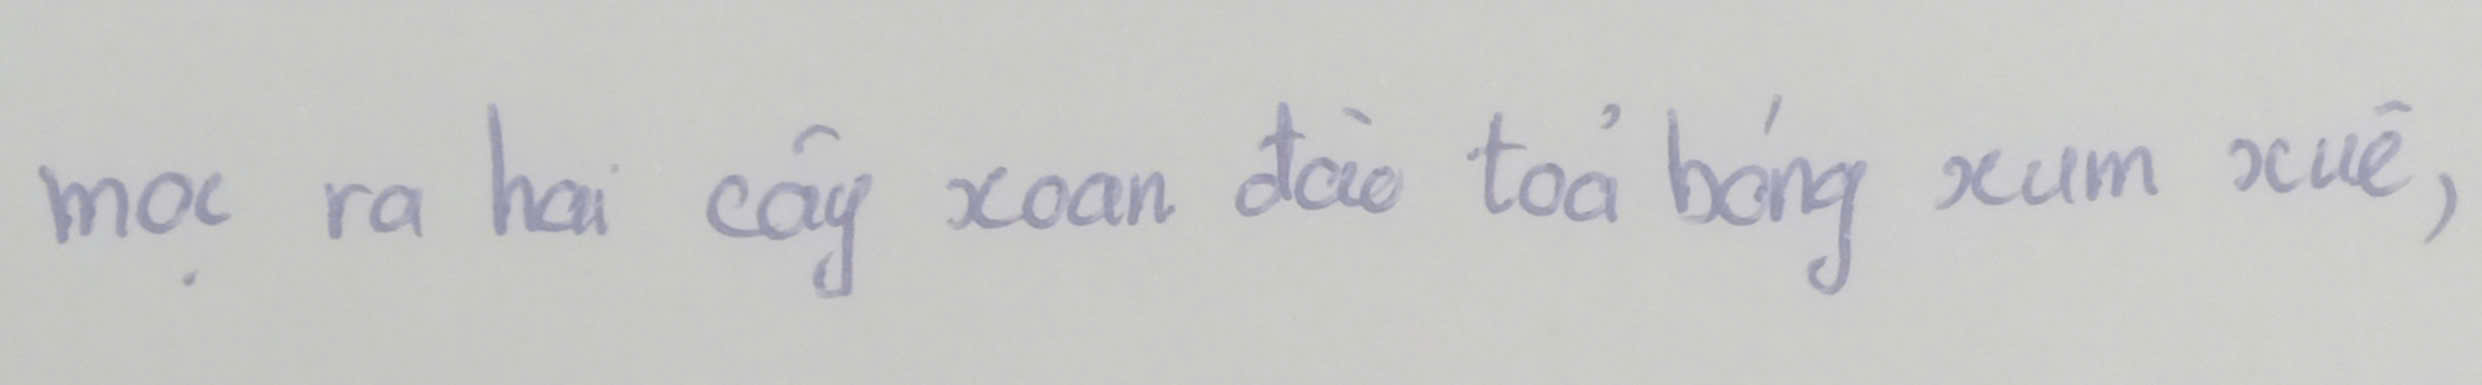 mọc ra hai cây xoan đào toả bóng xum xuê,